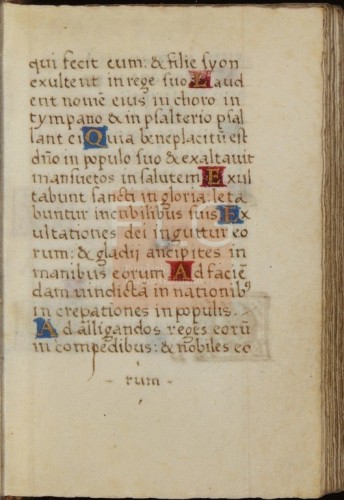 qui fecit eum: & filie syon
exultent in rege suo Laud
ent nomē eius in choro in
tympano & in psalterio psal
lant ei Quia beneplacitū est
dño in populo suo & exaltauit
mansuetos in salutem Exul
tabunt sancti in gloria: leta
buntur in cubilibus suis Ex
ultationes dei in guttur eo
rum: & gladii ancipites in
manibus eorum Ad faciē
dam uindictā in nationibꝰ
increpationes in populis.
Ad alligandos reges eorū
in compedibus: & nobiles eo
- rum -